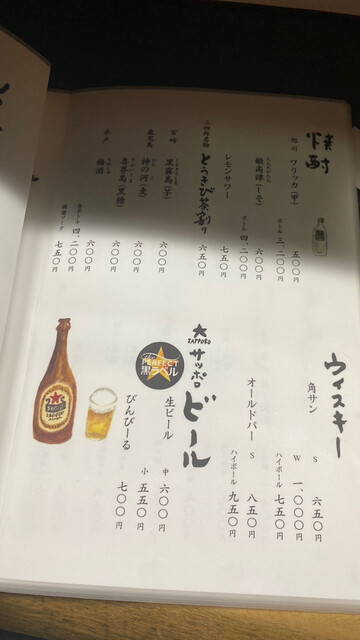 焼酎
旭川 ワリッカ(甲) 五〇〇円
ボトル 三、二〇〇円
鍛高譚(しそ) 六〇〇円
ボトル 四、二〇〇円
レモンサワー 七五〇円
三四郎名物
とうきび茶割り 六五〇円
宮崎 黒霧島(芋) 六〇〇円
鹿児島 神の河(麦) 六〇〇円
喜界島(黒糖) 六〇〇円
水戸 梅酒 六〇〇円
四、二〇〇円
梅酒ソーダ 七五〇円
ウィスキー
角サン S 六五〇円
W 一、〇〇〇円
ハイボール 七五〇円
オールドパー S 八五〇円
ハイボール 九五〇円
SAPPORO
サッポロビール
The PERFECT 黒ラベル
生ビール 中 六〇〇円
小 五五〇円
びんびーる 七〇〇円